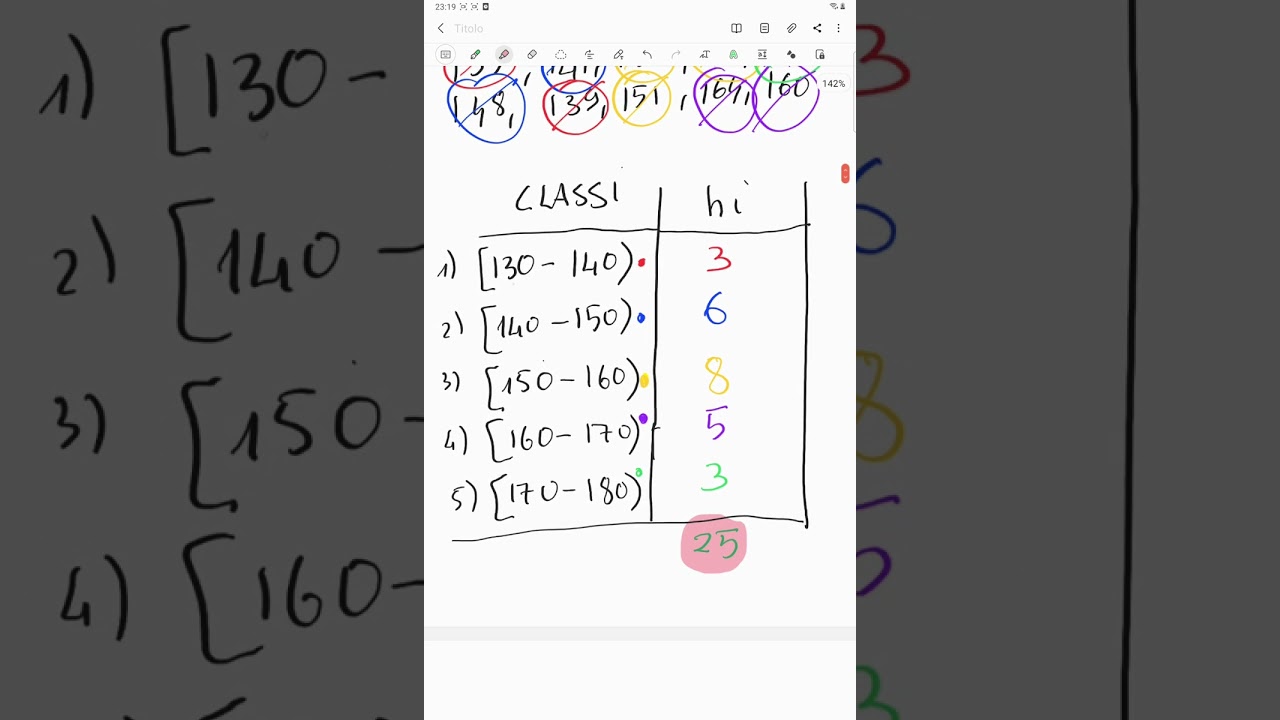 23:19
Titolo
142%
148, 139, 151, 164, 160
CLASSI hi
1) [130 - 140) 3
2) [140 - 150) 6
3) [150 - 160) 8
4) [160 - 170) 5
5) [170 - 180) 3
25